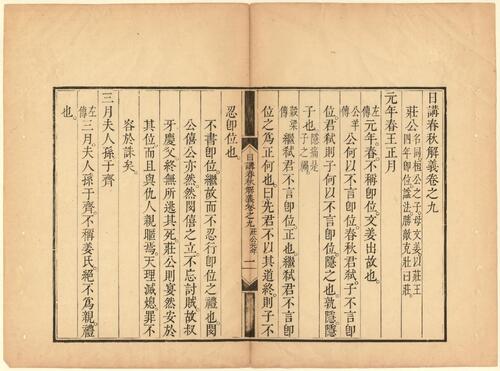 日講春秋解義卷之九
莊公名同桓公之子母文姜以莊王
四年卽位諡法勝敵克壯曰莊
元年春王正月
左傳元年春不稱卽位文姜出故也
公羊傳公何以不言卽位春秋君弒子不言卽
位君弒則子何以不言卽位隱之也孰隱
子也隱痛是
子之禍
穀梁傳繼弒君不言卽位正也繼弒君不言卽
位之爲正何也曰先君不以其道終則子不
日講春秋解義卷之九 莊公元年 一
忍卽位也
不書卽位繼故而不忍行卽位之禮也閔
公僖公亦然然閔僖之立不忘討賊故叔
牙慶父終無所逃其死莊公則宴然安於
其位而且與仇人親暱焉天理滅熄罪不
容於誅矣
三月夫人孫于齊
左傳三月夫人孫于齊不稱姜氏絕不爲親禮
也